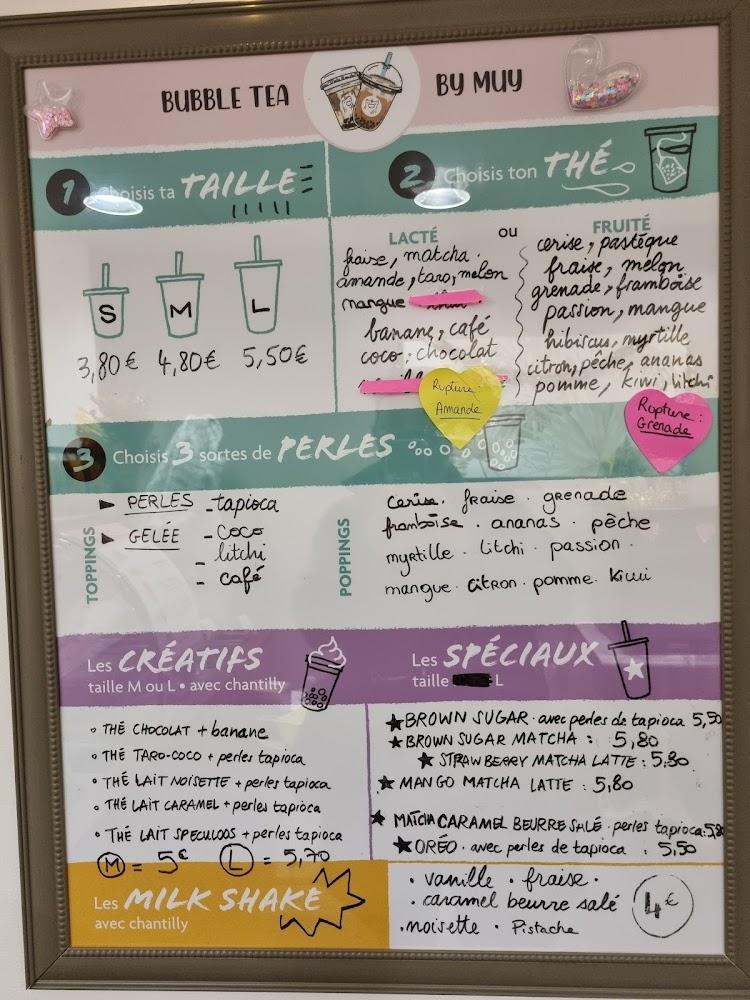 BUBBLE TEA BY MUY
1 Choisis ta TAILLE
2 Choisis ton THÉ
S M L
3,80€ 4,80€ 5,50€
LACTÉ
fraise, matcha.
amande, taro, melon
mangue
banane, café
coco, chocolat
ou
FRUITÉ
cerise, pastèque
fraise, melon
grenade, framboise
passion, mangue
hibiscus, myrtille
citron, pêche, ananas
pomme, kiwi, litchi
Rupture:
Amande
Rupture:
Grenade
3 Choisis 3 sortes de PERLES
TOPPINGS
► PERLES - tapioca
► GELÉE - coco
- litchi
- café
POPPINGS
cerise. fraise. grenade
framboise. ananas. pêche
myrtille. litchi. passion.
mangue. citron. pomme. kiwi
Les CRÉATIFS
taille M ou L • avec chantilly
• THÉ CHOCOLAT + banane
• THÉ TARO-COCO + perles tapioca
• THÉ LAIT NOISETTE + perles tapioca
• THÉ LAIT CARAMEL + perles tapioca
• THÉ LAIT SPECULOOS + perles tapioca
M = 5€ L = 5,70
Les SPÉCIAUX
taille L
★ BROWN SUGAR. avec perles de tapioca 5,50
★ BROWN SUGAR MATCHA : 5,80
★ STRAWBERRY MATCHA LATTE : 5,80
★ MANGO MATCHA LATTE : 5,80
★ MATCHA CARAMEL BEURRE SALÉ. perles tapioca: 5,80
★ ORÉO. avec perles de tapioca : 5,50
Les MILK SHAKE
avec chantilly
• vanille • fraise •
• caramel beurre salé
• noisette • Pistache
4€